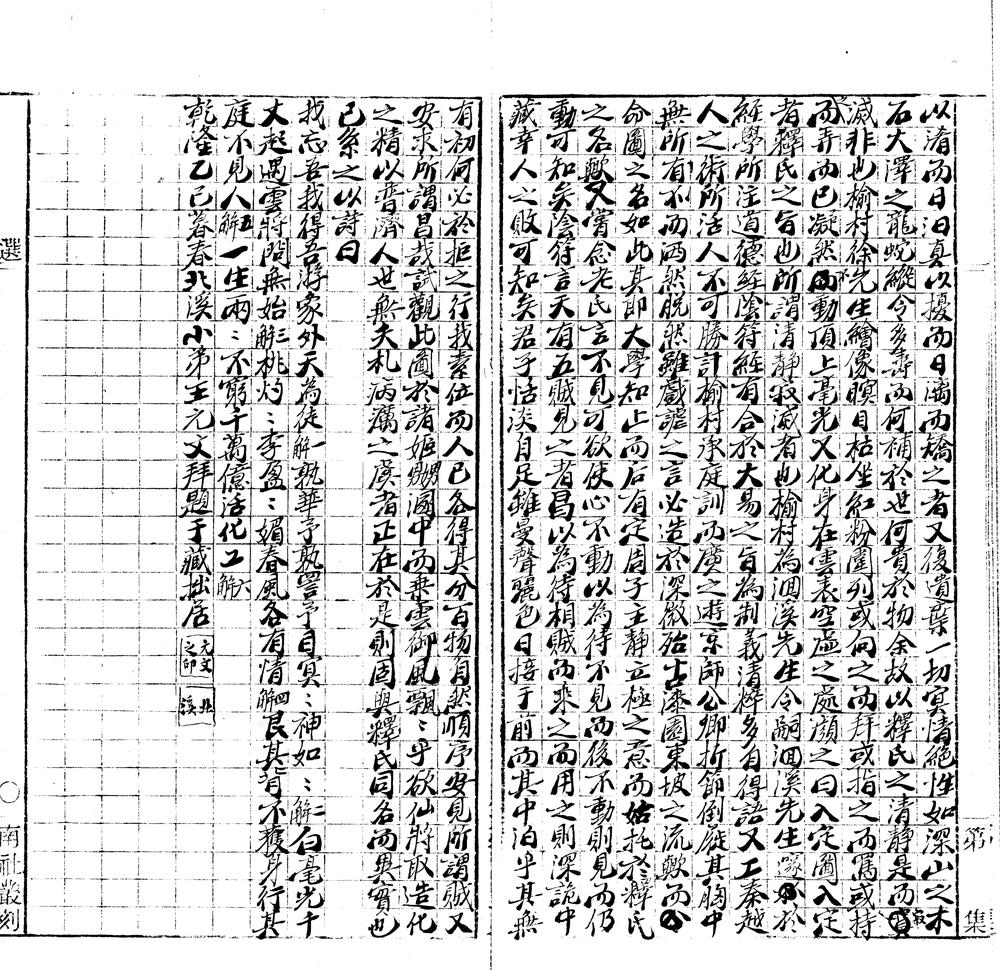 以淆而日汨真以擾而日漓而矯之者又復遺棄一切冥情絕性如深山之木
石大澤之龍蛇縱令多壽而何補於世何貴於物余故以釋氏之清静是而寂
滅非也榆村徐先生繪像瞑目枯坐紅粉圍列或向之而拜或指之而罵或持
而弄而已凝然不動頂上毫光又化身在雲表空虛之處顏之曰入定圖入定
者釋氏之旨也所謂清静寂滅者也榆村為洄溪先生令嗣洄溪先生邃於
經學所注道德經陰符經有合於大易之旨為制義清粹多自得語又工秦越
人之術所活人不可勝計榆村承庭訓而廣之遊京師公卿折節倒屣其胸中
無所有不而洒然脫然雖戲謔之言必造於深微殆古漆園東坡之流歟而
命圖之名如此其即大學知止而后有定周子主静立極之意而姑托於釋氏
之名歟又嘗念老氏言不見可欲使心不動以為待不見而後不動則見而仍
動可知矣陰符言天有五賊見之者昌以為待相賊而乘之而用之則深詭中
藏幸人之敗可知矣君子恬淡自足雖曼聲麗色日接于前而其中泊乎其無
有初何必於拒之行我素位而人己各得其分百物自然順序安見所謂賊又
安求所謂昌哉試觀此圖於諸姬嬲溷中而乘雲御風飄〻乎欲仙將取造化
之精以普濟人世無夭札病癘之虞者正在於是則固與釋氏同名而異實也
已系之以詩曰
我忘吾我得吾將家外天為徒一解孰華予孰詈予目冥〻神如〻二解白毫光千
丈起遇雲將問無始三解桃灼〻李盈〻媚春風各有情四解艮其背不獲身行其
庭不見人五解一生兩〻不窮千萬億活化工六解
乾隆乙巳暮春北溪小弟王元文拜題于藏拙居
元文之印
北溪
選
南社叢刻
第
集